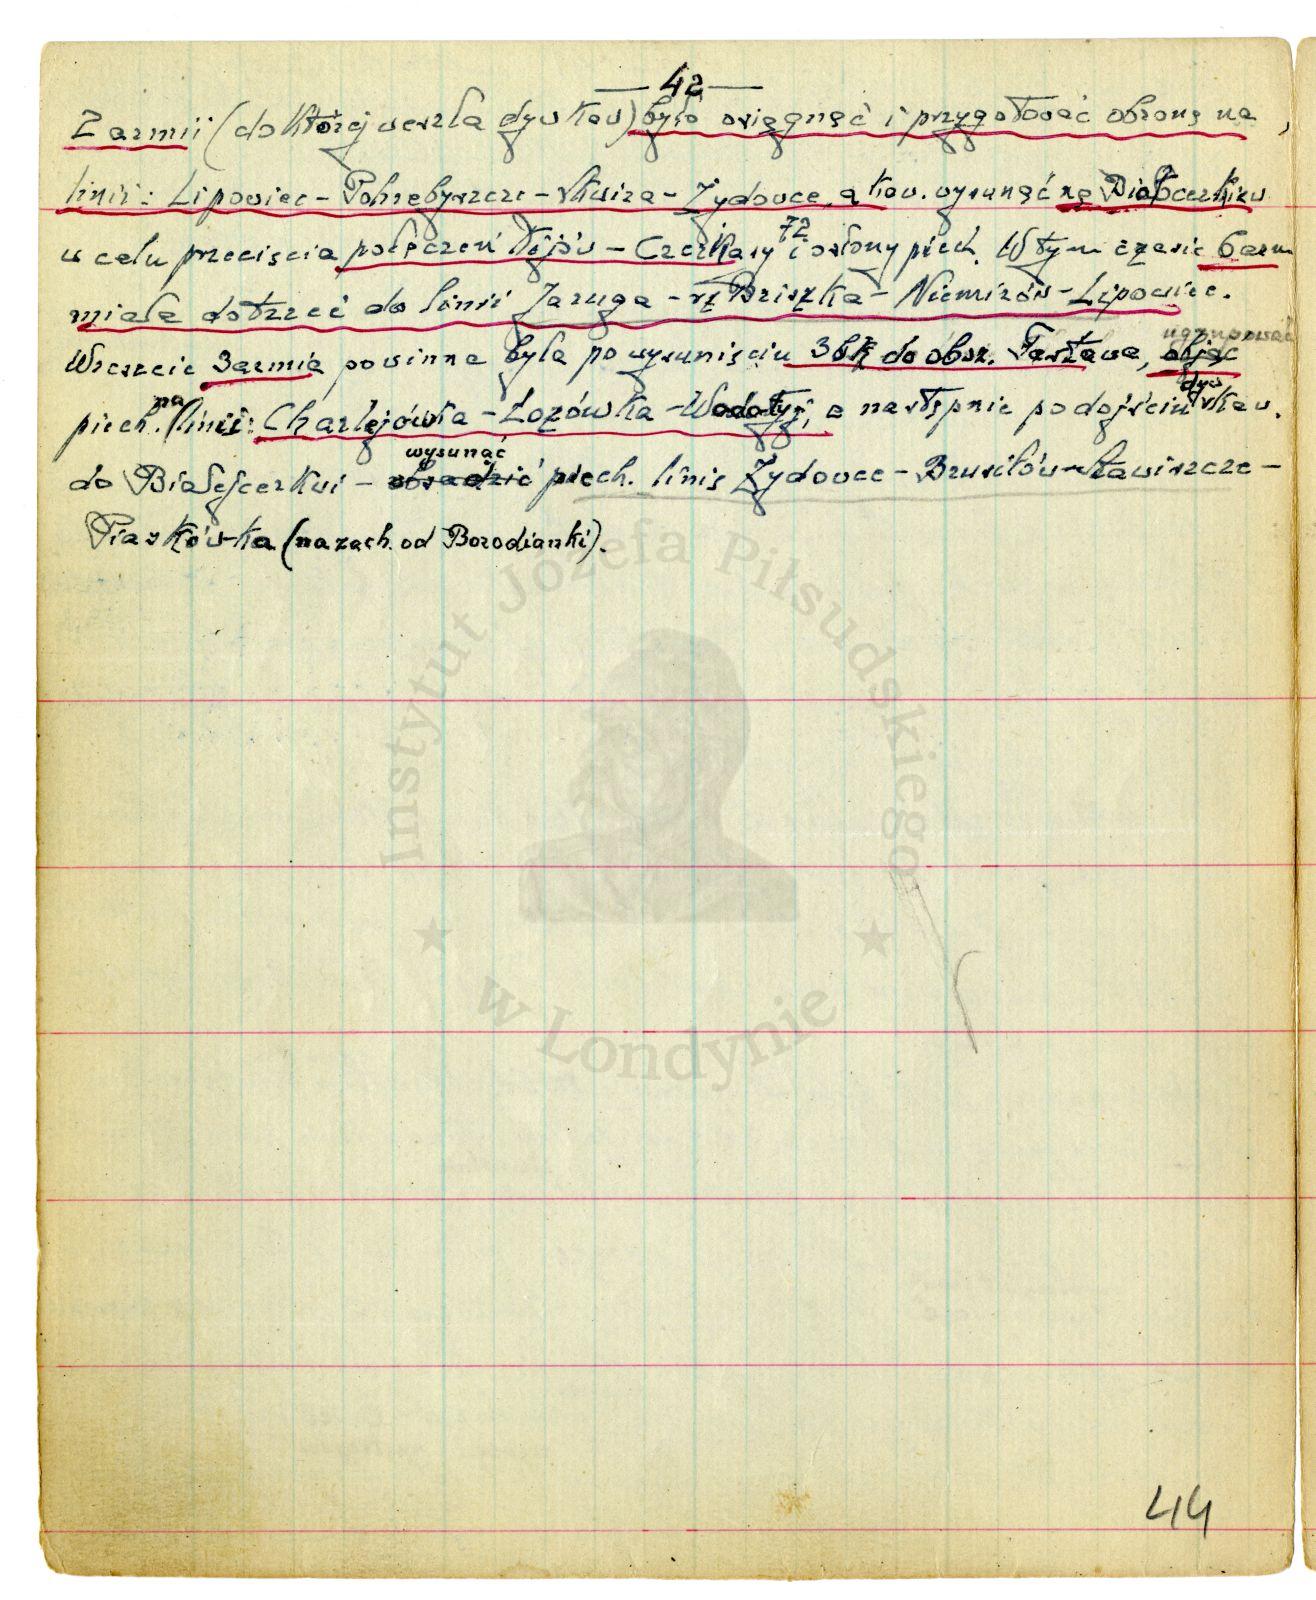 — 42 —
2 armii (do której weszla dyw kaw) było osięgnąć i przygotować obronę na
linii: Lipowiec – Pohrebyszcze – Skwira – Żydowce, a kaw. wysunąć na Białocerkiew
w celu przecięcia połączeń Kijów – Czerkasy 72 i osłony piech. W tym czasie 6 arm
miała dotrzeć do linii Jaruga – rz Briszka – Niemirów – Lipowiec.
ugrupować
Wreszcie 3 armia powinna była po wysunięciu 3 bk do obsz. Fastowa, objąc
na dyw
piech. linii: Charlejówka – Łozówka – Wodotyj, a następnie po dojściu kaw.
wysunąć
do Białejcerkwi – obsadzić piech. linię Żydowce – Brusiłów – Stawiszcze –
Piaskówka (na zach. od Borodianki).
Instytut Józefa Piłsudskiego
w Londynie
44